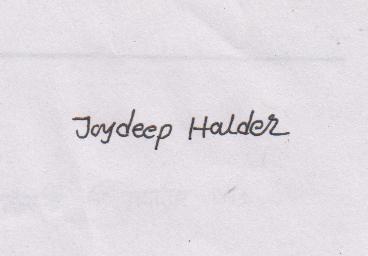 Joydeep Halder